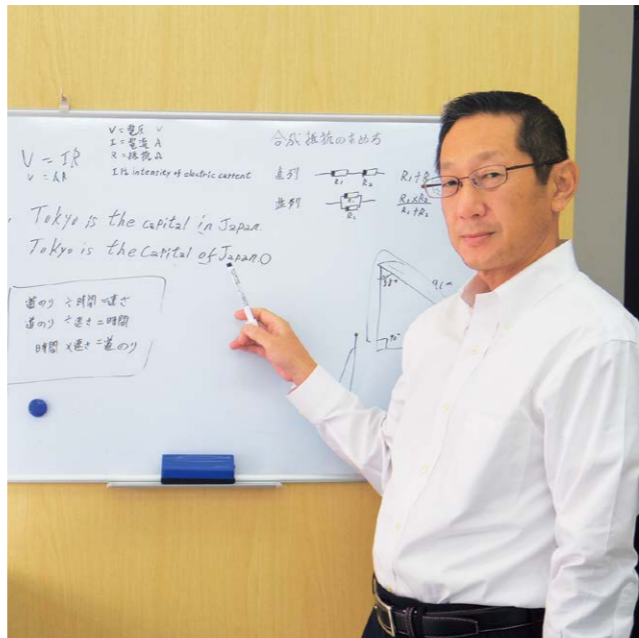 V = IR
V = 電圧 V
I = 電流 A
R = 抵抗 Ω
I is intensity of electric current
合成抵抗のもとめ方
直列 R₁ R₂ R₁+R
並列 R₁ R₂ R₁×R₂
R₁+R₂
Tokyo is the capital in Japan.
Tokyo is the Capital of Japan.○
道のり ÷ 時間 = 速さ
道のり ÷ 速さ = 時間
時間 × 速さ = 道のり
90°